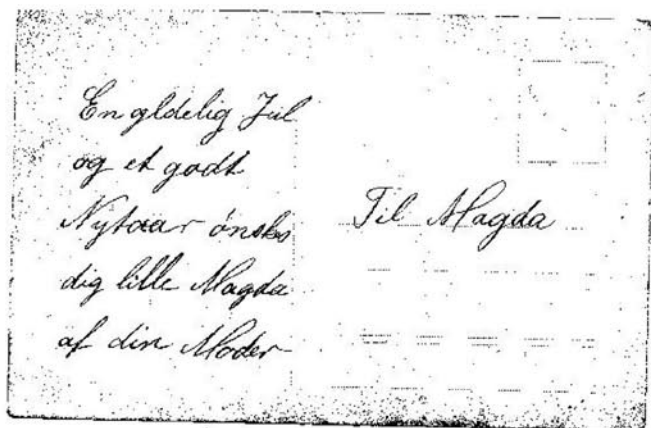 En gldelig Jul
og et godt
Nytaar ønskes
dig lille Magda
af din Moder
Til Magda